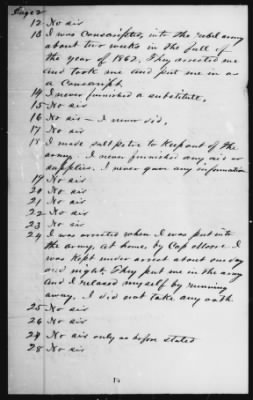 Page 2
12 No sir
13 I was Conscripted, into the rebel army
about two weeks in the fall of
the year of 1862. They arrested me
and took me and put me in as
a Conscript.
14 I never furnished a substitute.
15 No sir
16 No sir — I never did.
17 No sir
18 I made salt petre to keep out of the
army. I never furnished any aid or
supplies. I never gave any information
19 No sir
20 No sir
21 No sir
22 No sir
23 No sir
24 I was arrested when I was put into
the army, at home, by Cap Moore. I
was kept under arrest about one day
and night. They put me in the army
and I released myself by running
away. I did not take any oath.
25 No sir
26 No sir
27 No sir only as before stated
28 No sir